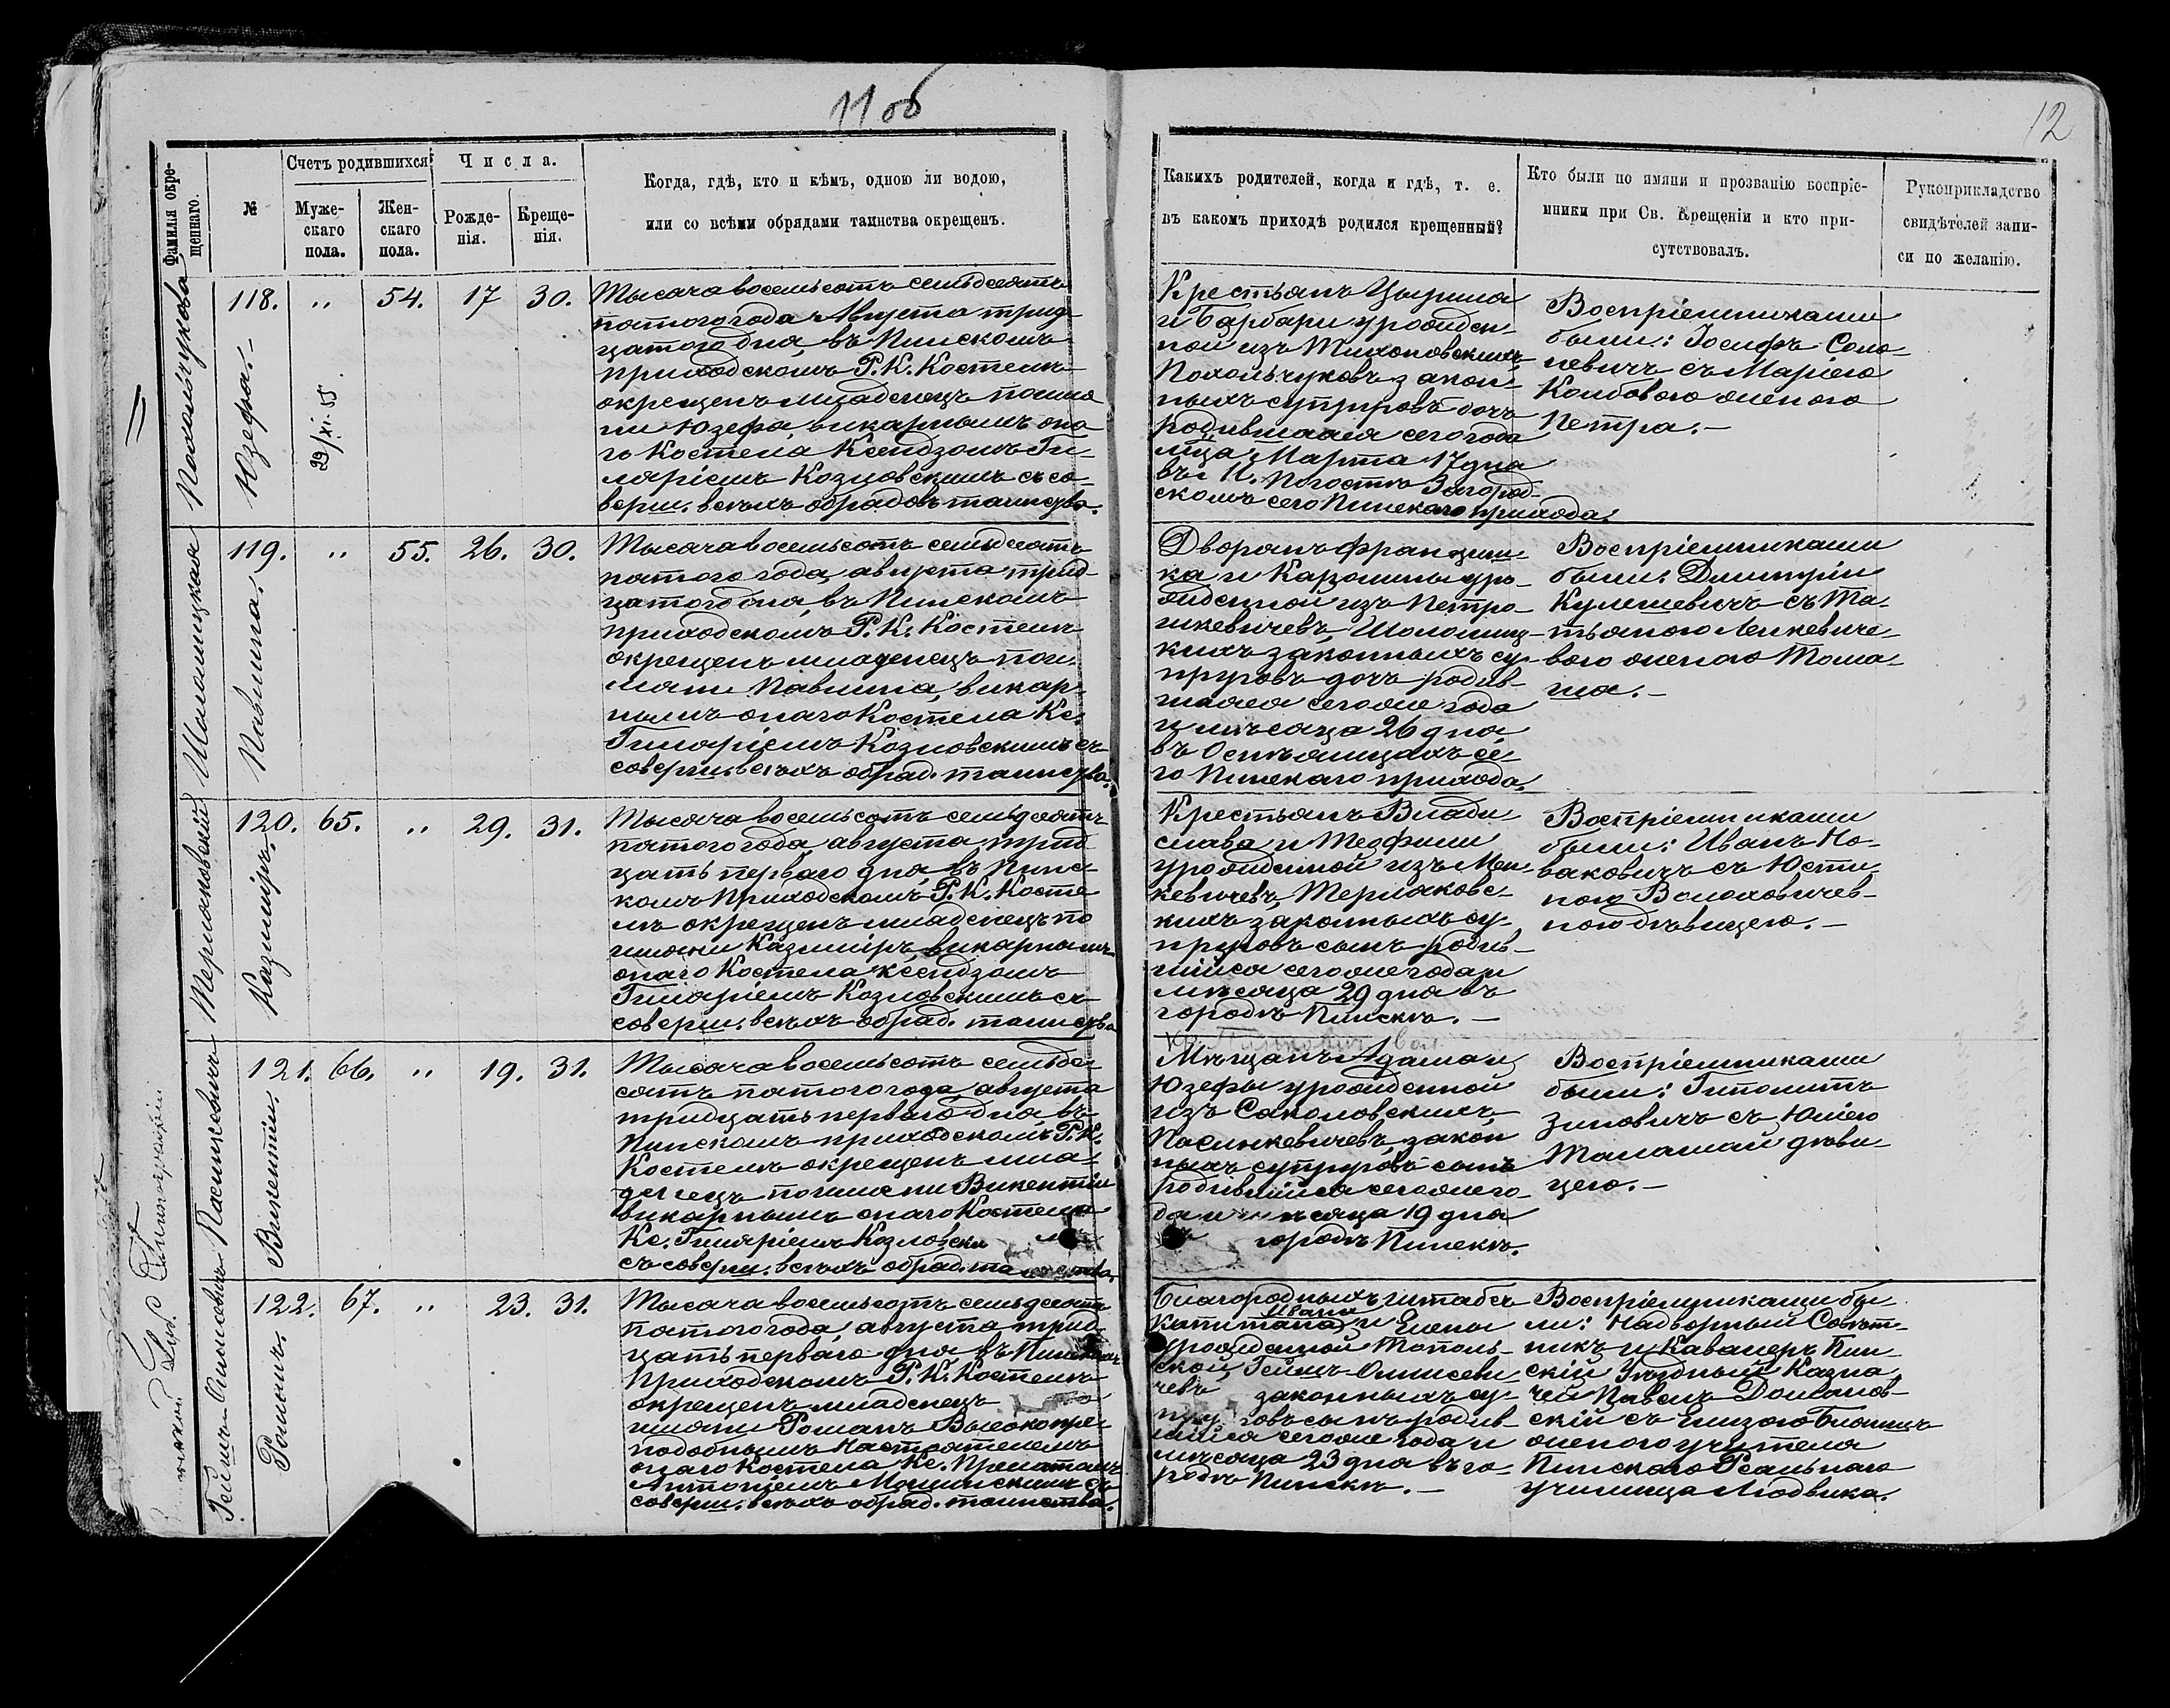 11 об
12
Фамилія окрещеннаго.
№
Счетъ родившихся
Мужескаго пола.
Женскаго пола.
Числа.
Рожденія.
Крещенія.
Когда, гдѣ, кто и кѣмъ, одною ли водою,
или со всѣми обрядами таинства окрещенъ.
Какихъ родителей, когда и гдѣ, т. е.
въ какомъ приходѣ родился крещенный?
Кто были по имяни и прозванію воспріе-
мники при Св. Крещеніи и кто при-
сутствовалъ.
Рукоприкладство
свидѣтелей запи-
си по желанію.
Похольчукова
Юзефа.
29/XI.55.
118. „ 54. 17 30.
Тысяча восемьсотъ семьдесятъ
пятого года Августа трид-
цатого дня, въ Пинскомъ
приходскомъ Р. К. Костелѣ
окрещенъ младенецъ по имя
ни Юзефа, викарнымъ она
го Костела Ксендзомъ Ги-
ляріемъ Козловскимъ съ со-
верш. всѣхъ обрядовъ таинства.
Крестьянъ Цырила
и Барбары урожден-
ной изъ Тихоновскихъ
Похольчуковъ закон-
ныхъ супруговъ дочь
родившаяся сего года
мца Марта 17 дня
въ Погостѣ Загород-
скомъ сего Пинскаго прихода.
Воспріемниками
были: Іосифъ Соло-
невичъ съ Маріею
Колбовою женою
Петра.
Шоломицкая
Павлина.
119. „ 55. 26. 30.
Тысяча восемьсотъ семьдесятъ
пятого года августа трид-
цатого дня, въ Пинскомъ
приходскомъ Р. К. Костелѣ
окрещенъ младенецъ по и
мяни Павлина, викар-
нымъ онаго Костела Кс.
Гиляріемъ Козловскимъ съ
соверш. всѣхъ обряд. таинства.
Дворянъ Франциш-
ка и Каролины уро-
жденной изъ Петра-
шкевичевъ Шоломиц-
кихъ законныхъ су-
пруговъ дочь родив-
шаяся сего же года
и мѣсяца 26 дня
въ се-
го Пинскаго прихода.
Воспріемниками
были: Дмитрій
Кулешевичъ съ Та-
тьяною Ленкевиче-
вою женою Тома-
ша.
Терлиховскій
Казиміръ.
120. 65. „ 29. 31.
Тысяча восемьсотъ семьдесятъ
пятого года августа трид
цать перваго дня, въ Пинс-
комъ Приходскомъ Р. К. Косте
лѣ окрещенъ младенецъ по
имяни Казиміръ, викарнымъ
онаго Костела Ксендзомъ
Гиляріемъ Козловскимъ съ
соверш. всѣхъ обряд. таинства
Крестьянъ Влади
слава и Теофили
урожденной изъ Мен-
кевичевъ,
кихъ законныхъ су-
пруговъ сынъ родив-
шійся сего же года и
мѣсяца 29 дня въ
городѣ Пинскѣ.
Воспріемниками
были: Иванъ Но-
ваковичъ съ Юсти-
ною Волоховичев-
ною дѣвицею.
Пасинкевичъ
Викентій.
121. 66. „ 19. 31.
Тысяча восемьсотъ семьде-
сятъ пятого года августа
тридцать перваго дня, въ
Пинскомъ приходскомъ Р. К.
Костелѣ окрещенъ мла-
денецъ по имяни Викентій
викарнымъ онаго Костела
Кс. Гиляріемъ Козловски
съ соверш. всѣхъ обряд. таинства.
Мѣщанъ Адама и
Юзефы урожденной
изъ Соколовскихъ
Пасинкевичевъ, закон
ныхъ супруговъ сынъ
родившійся сего же го-
да и мѣсяца 19 дня
городѣ Пинскѣ.
Воспріемниками
были: Гиполитъ
Зиновичъ съ Юліею
дѣви
цею.
Романъ.
122. 67. „ 23. 31.
Тысяча восемьсотъ семьдесятъ
пятого года, августа трид
цать перваго дня въ Пинскомъ
Приходскомъ Р. К. Костелѣ
окрещенъ младенецъ по
имяни Романъ Высокопре-
подобнымъ Настоятелемъ
онаго Костела Кс. Прелатомъ
Антоніемъ съ
соверш. всѣхъ обряд. таинства.
Благородныхъ штабсъ
капитана Ивана и Елены
урожденной Тополь-
ской,
чевъ законныхъ су-
пруговъ сынъ родив-
шійся сего же года и
мѣсяца 23 дня въ го-
родѣ Пинскѣ.
Воспріемниками бы-
ли: Надворный Совѣт-
никъ и Кавалеръ Пин-
скій Уѣздный Казна-
чей Павелъ
скій съ Елизою
женою учителя
Пинскаго Реальнаго
училища Людвика.